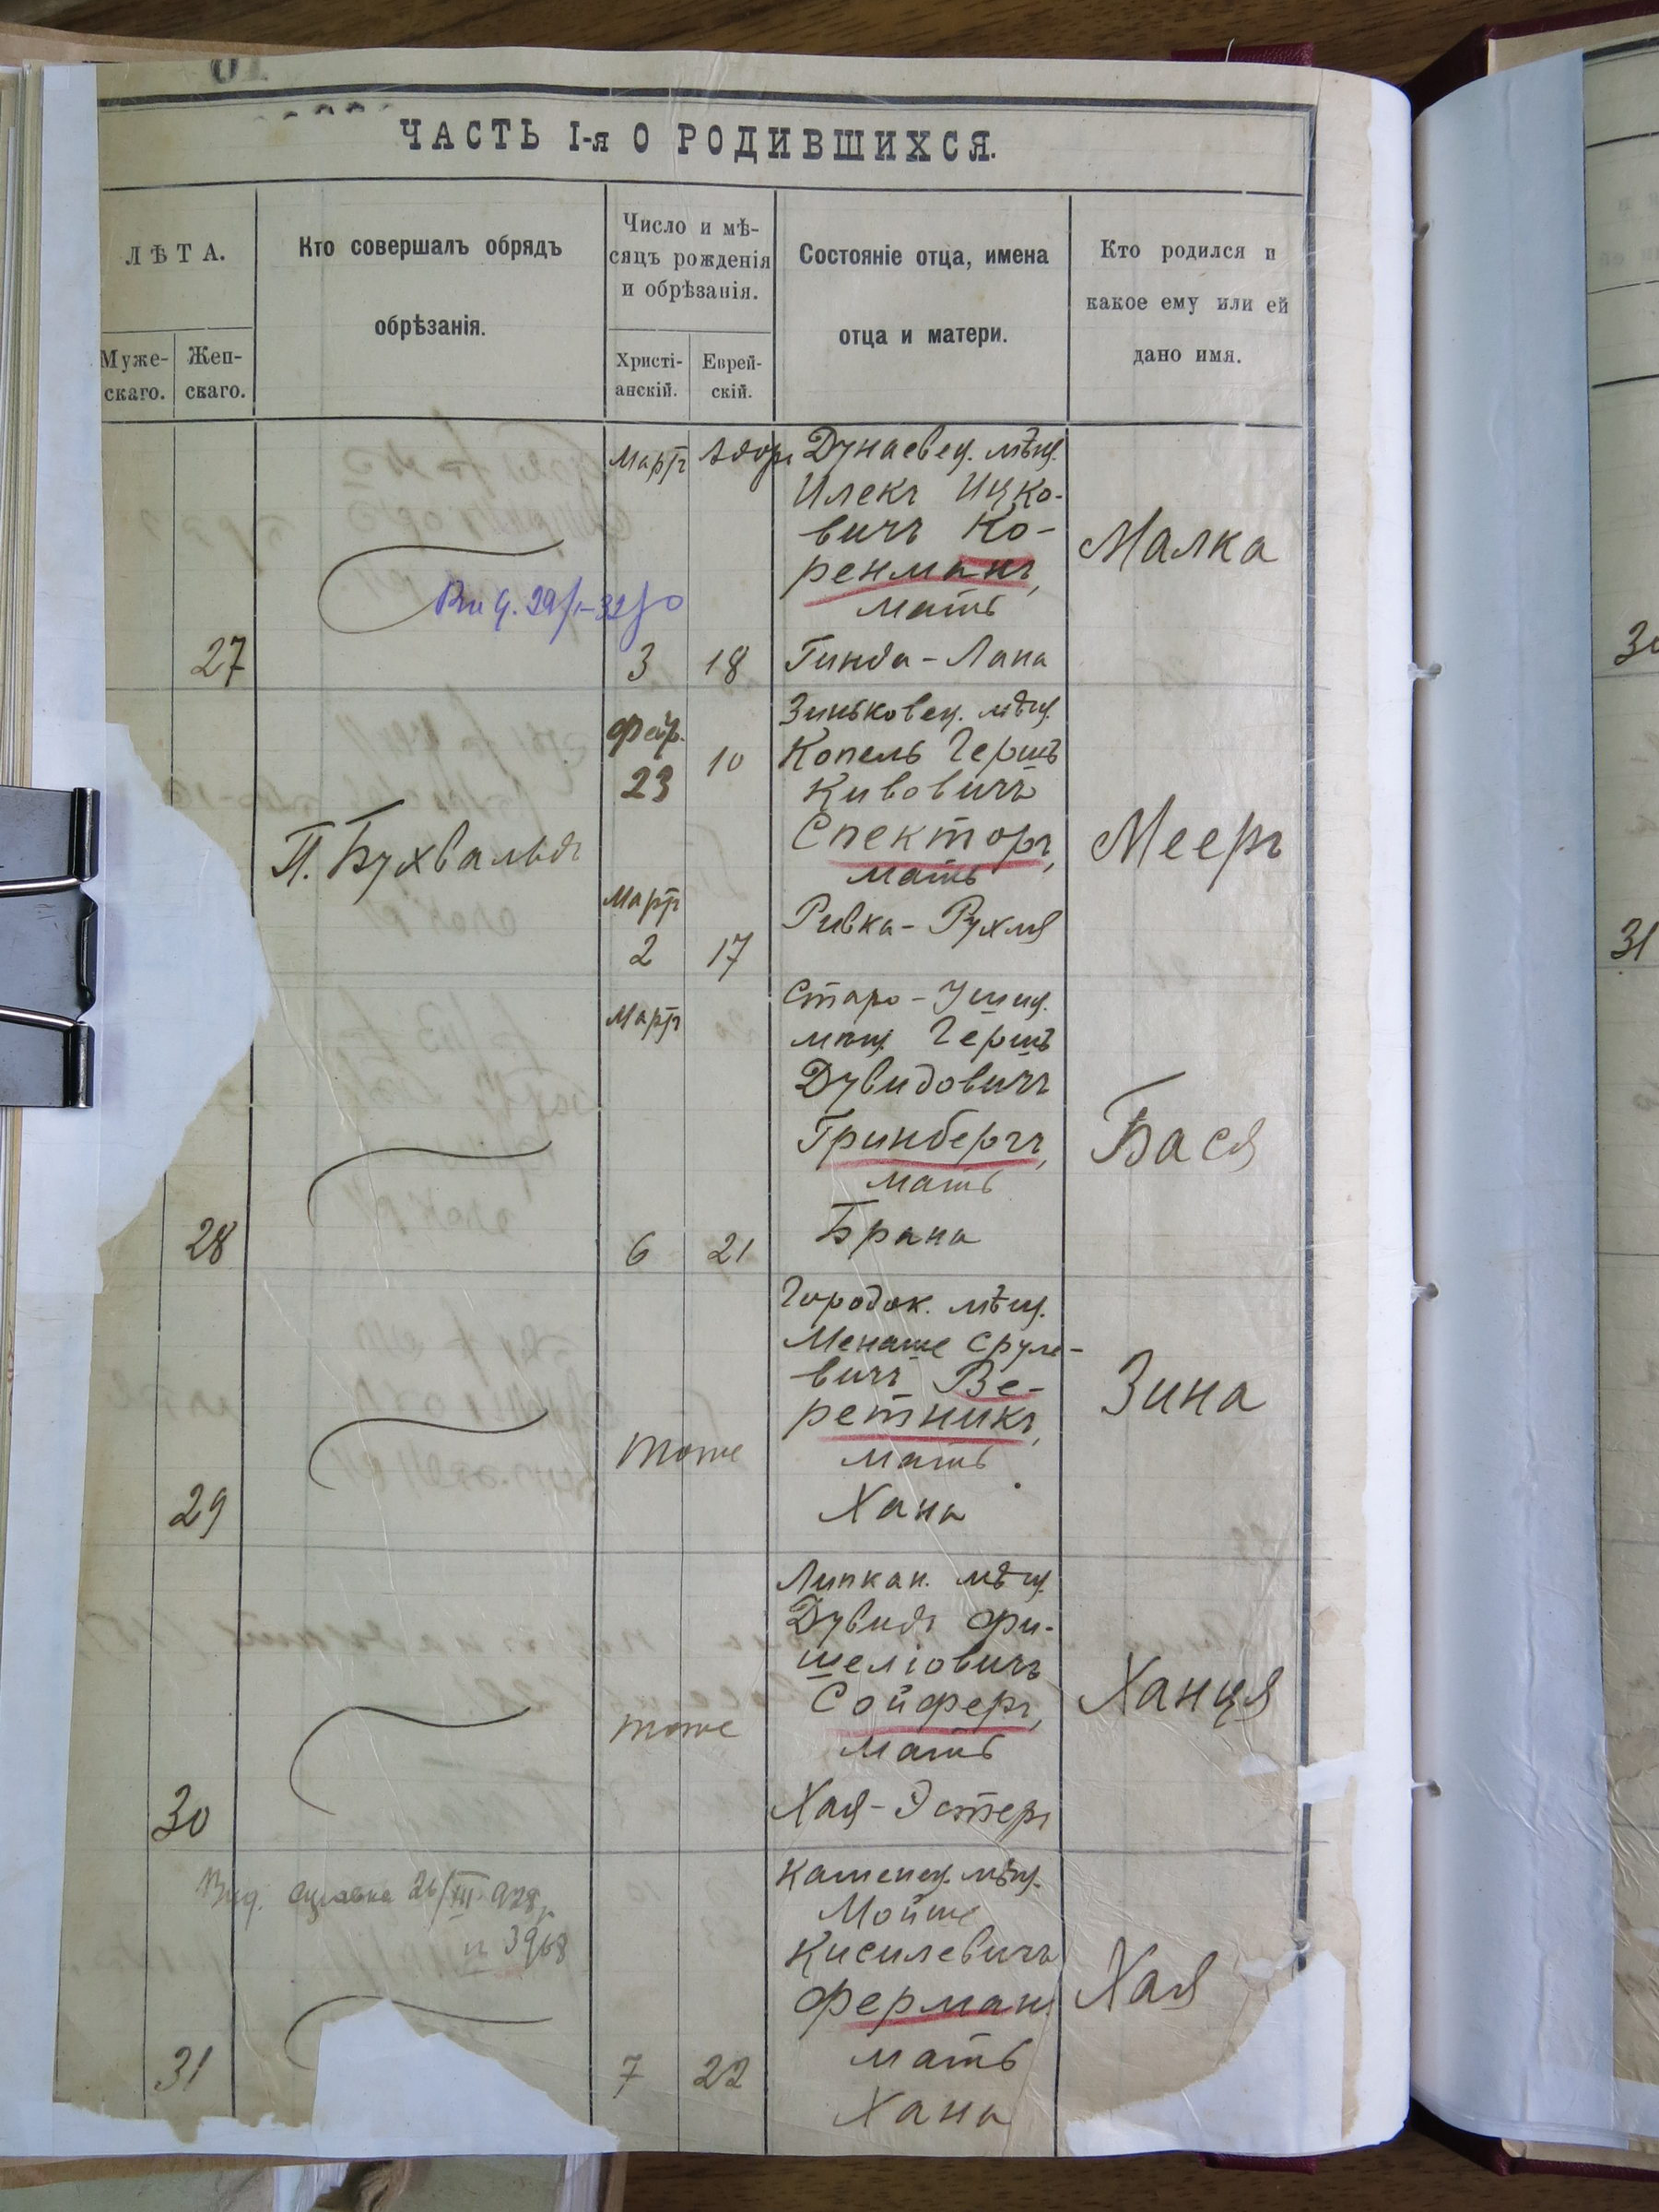 ЧАСТЬ I-я О РОДИВШИХСЯ.
ЛѢТА.
Муже-
скаго.
Жен-
скаго.
Кто совершалъ обрядъ
обрѣзанія.
Число и мѣ-
сяцъ рожденія
и обрѣзанія.
Христі-
анскій.
Еврей-
скій.
Состояніе отца, имена
отца и матери.
Кто родился и
какое ему или ей
дано имя.
27
Мартъ
3
Адоръ
18
Дунаевец. мѣщ.
Илекъ Ицко-
вичъ Ко-
ренманъ,
мать
Гинда-Лана
Малка
П. Бухвальдъ
Февр.
23
10
Мартъ
2
17
Зиньковец. мѣщ.
Копель Гершъ
Кивовичъ
Спекторъ,
мать
Ривка-Рухля
Мееръ
28
Мартъ
6
21
Старо-Ушиц.
мѣщ. Гершъ
Дувидовичъ
Гринбергъ,
мать
Брана
Бася
29
тоже
Городок. мѣщ.
Менаше Сруле-
вичъ Ве-
ретникъ,
мать
Хана
Зина
30
тоже
Липкан. мѣщ.
Дувидъ Фи-
шеліовичъ
Сойферъ,
мать
Хая-Эстеръ
Ханця
Выд. справка 26/III 928 г.
№ 3968
31
7
22
Каменец. мѣщ.
Мойше
Кисилевичъ
Ферман
мать
Хана
Хая
30
31